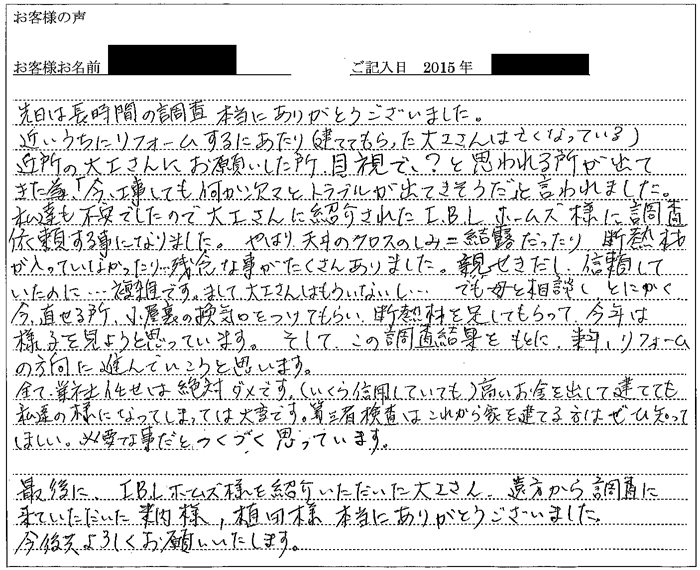 お客様の声
お客様お名前 ご記入日 2015年
先日は長時間の調査 本当にありがとうございました。
近いうちにリフォームするにあたり(建ててもらった大工さんは亡くなっている)
近所の大工さんにお願いした所、目視で、?と思われる所が出て
きた為、「今、工事しても何か次々とトラブルが出てきそうだ」と言われました。
私達も不安でしたので大工さんに紹介されたI.B.Lホームズ様に調査
依頼する事になりました。やはり天井のクロスのしみ=結露だったり 断熱材
が入っていなかったり…残念な事がたくさんありました。親せきだし、信頼して
いたのに…複雑です。まして、大工さんはもういないし… でも母と相談し とにかく
今、直せる所、小屋裏の換気口をつけてもらい、断熱材を足してもらって、今年は
様子を見ようと思っています。そして、この調査結果をもとに、来年、リフォーム
の方向に進んでいこうと思います。
全て業者任せは絶対ダメです。(いくら信用していても)高いお金を出して建てても
私達の様になってしまっては大変です。第三者検査はこれから家を建てる方はぜひ知って
ほしい。必要な事だとつくづく思っています。
最後に、I.B.Lホームズ様を紹介いただいた大工さん、遠方から調査に
来ていただいた 様、植田様 本当にありがとうございました。
今後共よろしくお願いいたします。